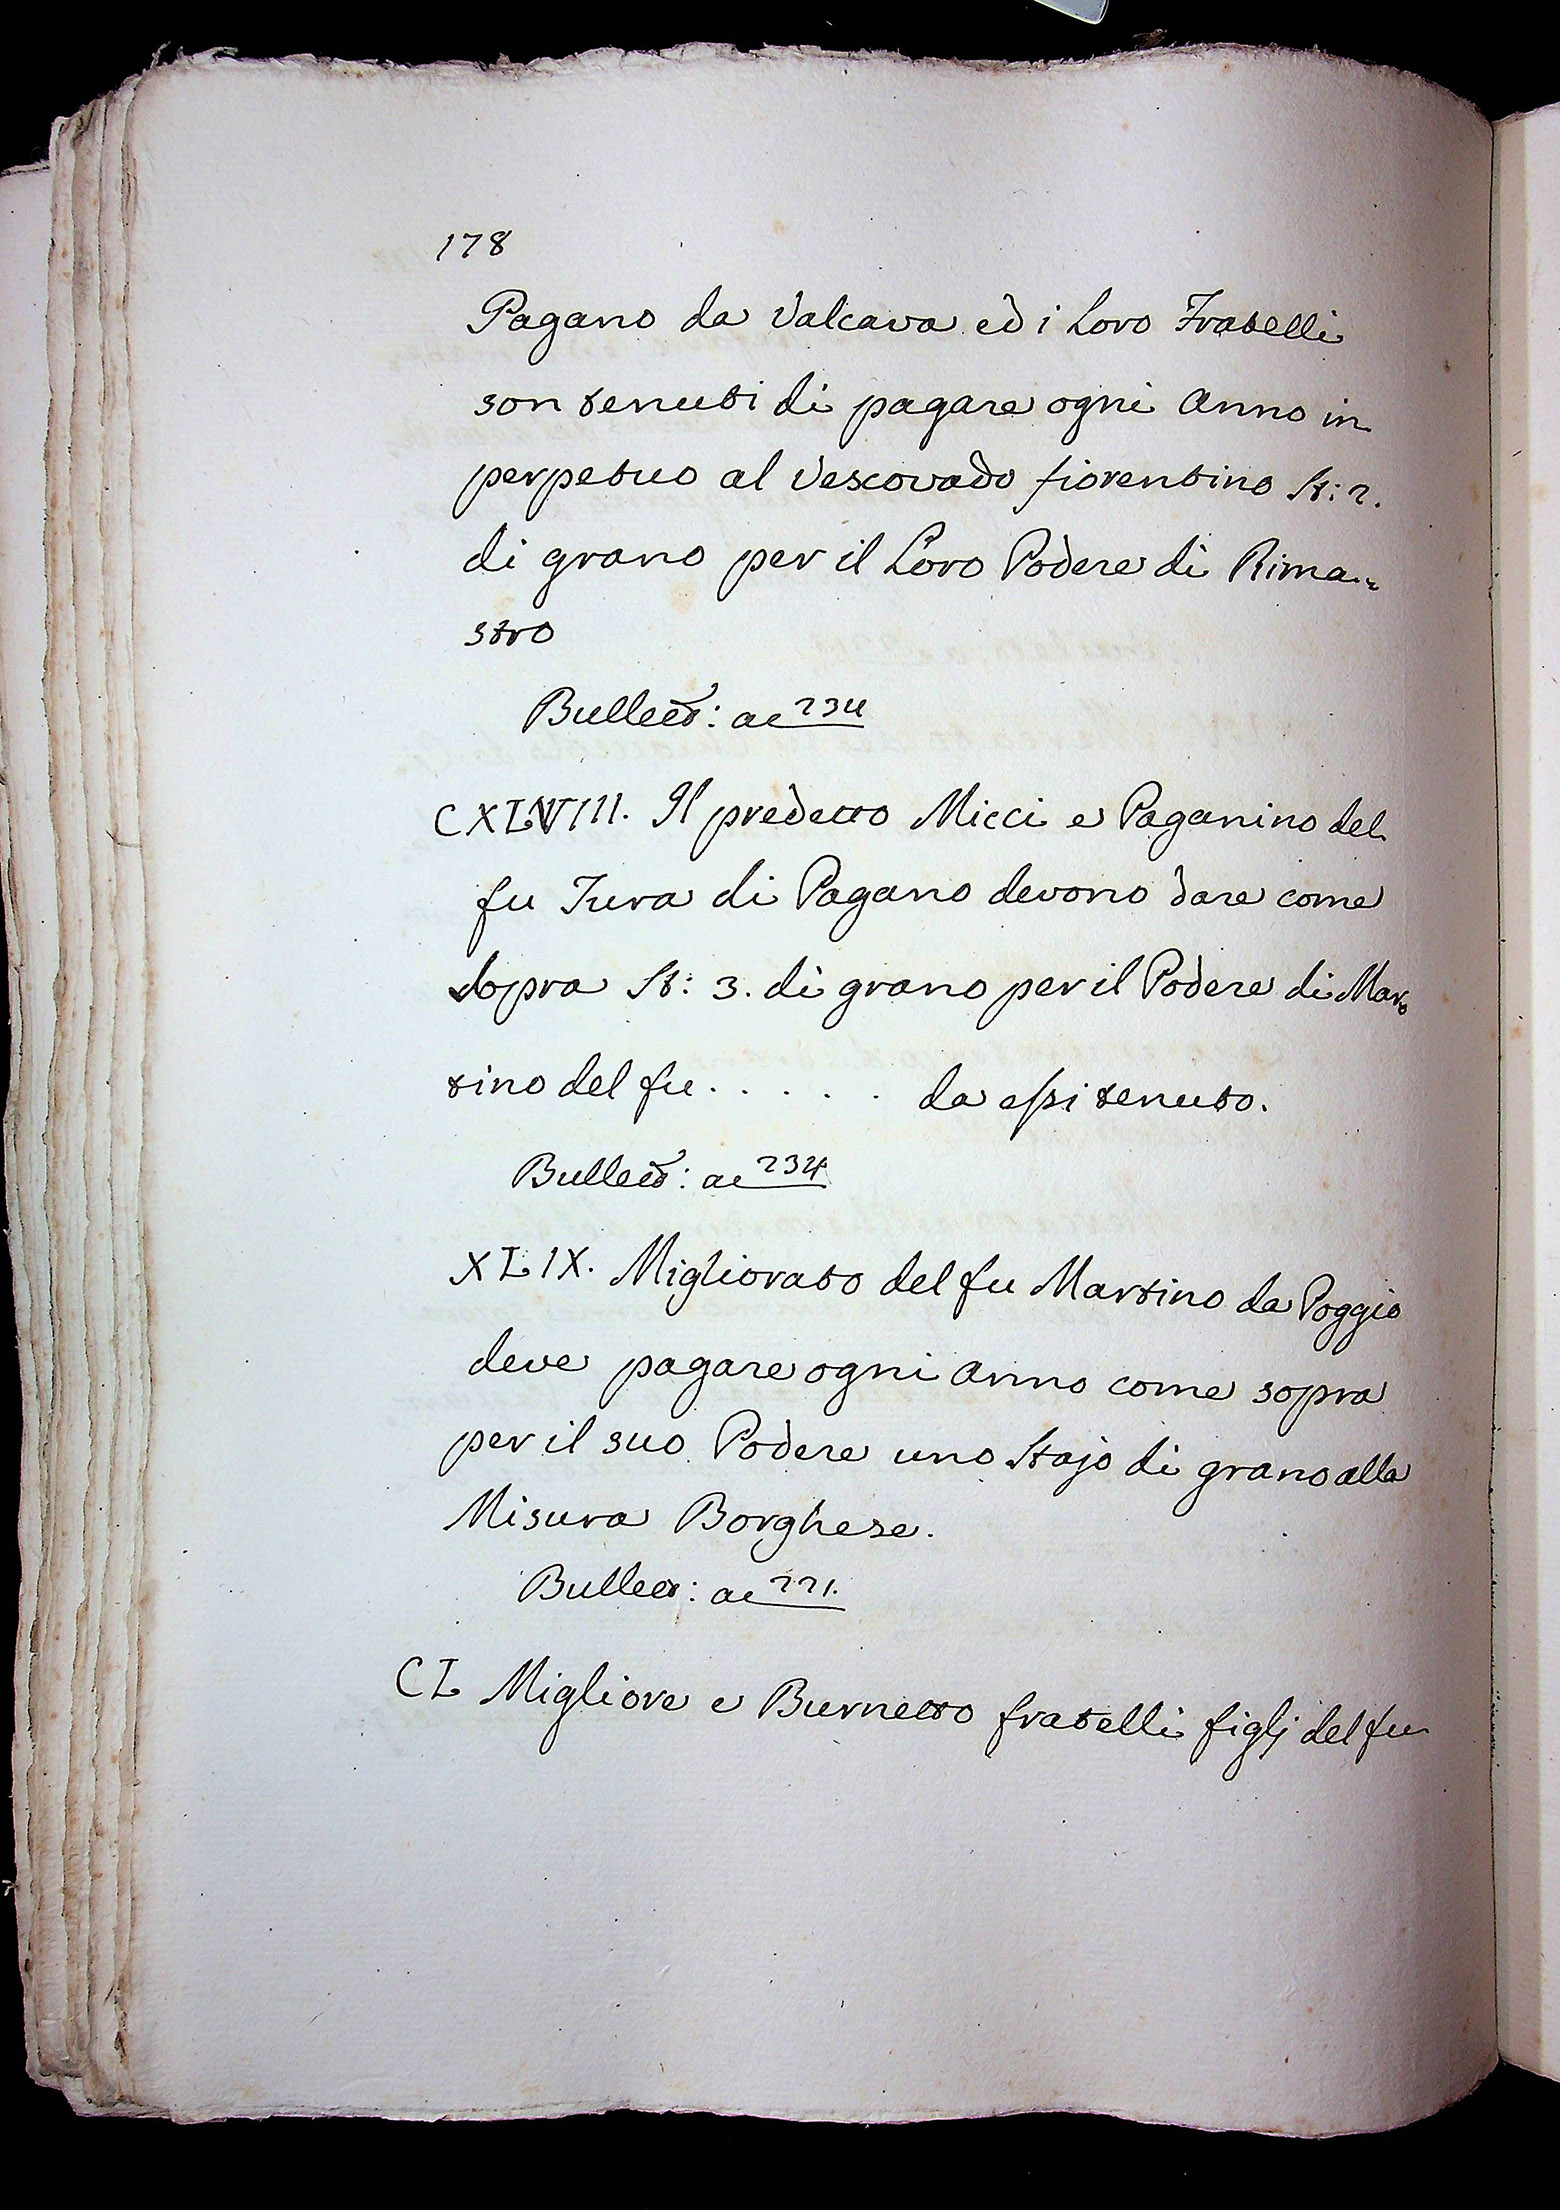 178
Pagano da Valcava ed i Loro Fratelli
son tenuti di pagare ogni Anno in
perpetuo al Vescovado fiorentino St: 2.
di grano per il Loro Podere di Rima=
stro
Bullett: ac 234
CXLVIII. Il predetto Micci e Paganino del
fu Jura di Pagano devono dare come
sopra St: 3. di grano per il Podere di Mar=
tino del fu . . . . . da essi tenuto.
Bullett: ac 234
XLIX. Migliorato del fu Martino da Poggio
deve pagare ogni Anno come sopra
per il suo Podere uno Stajo di grano alla
Misura Borghese.
Bullett: ac 221.
CL Migliore e Burnetto fratelli figlj del fu